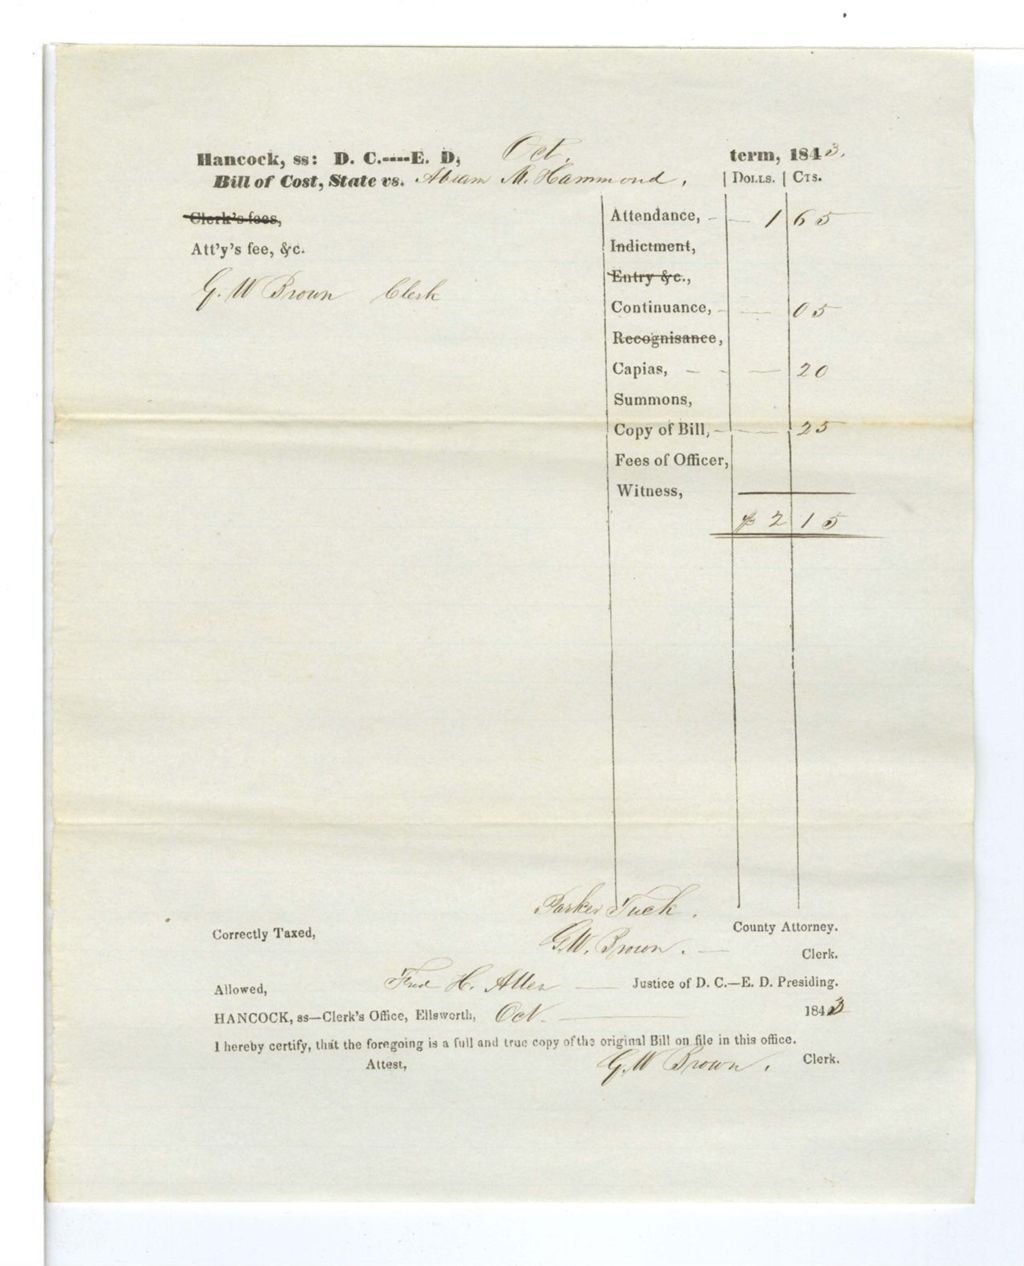 Hancock, ss: D. C.----E. D, Oct. term, 1843.
Bill of Cost, State vs. Abram M. Hammond. | Dolls. | Cts.
Clerk's fees,
Att'y's fee, &c.
G. W Brown Clerk
Attendance, - - 1 65
Indictment,
Entry &c.,
Continuance, - — 05
Recognisance,
Capias, - - — 20
Summons,
Copy of Bill, - — 25
Fees of Officer,
Witness,
$ 2 15
Parker Tuck. County Attorney.
Correctly Taxed, G. W. Brown. — Clerk.
Allowed, Fred H. Allen — Justice of D. C.—E. D. Presiding.
HANCOCK, ss—Clerk's Office, Ellsworth, Oct. — 1843
I hereby certify, that the foregoing is a full and true copy of the original Bill on file in this office.
Attest, G. W Brown. Clerk.